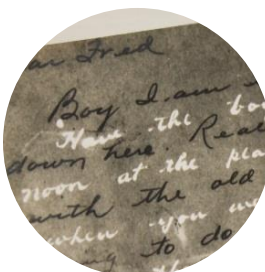 ar Fred
Boy I am
Have the bo
down here. Real
noon at the pla
with the old
when you we
to do